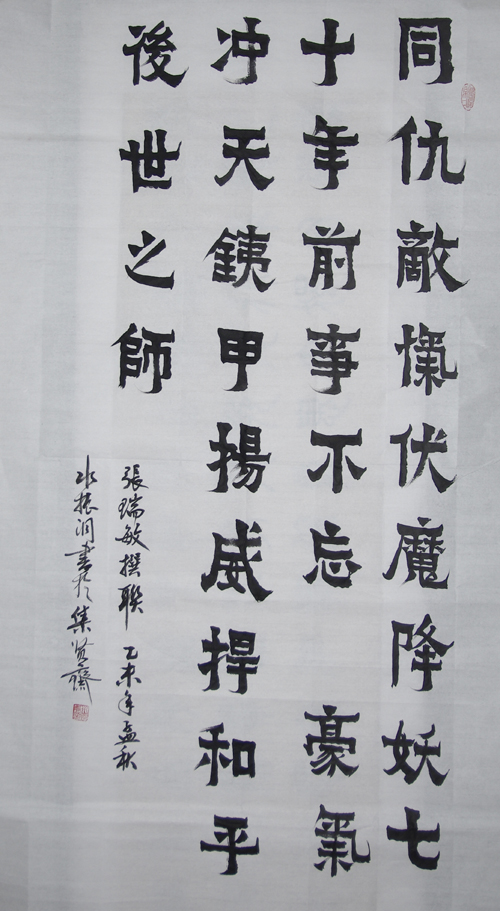 同仇敵愾伏魔降妖七
十年前事不忘 豪氣
冲天銕甲揚威捍和平
後世之師
張瑞敏撰聯 乙未年孟秋
水振润書於集贤齋